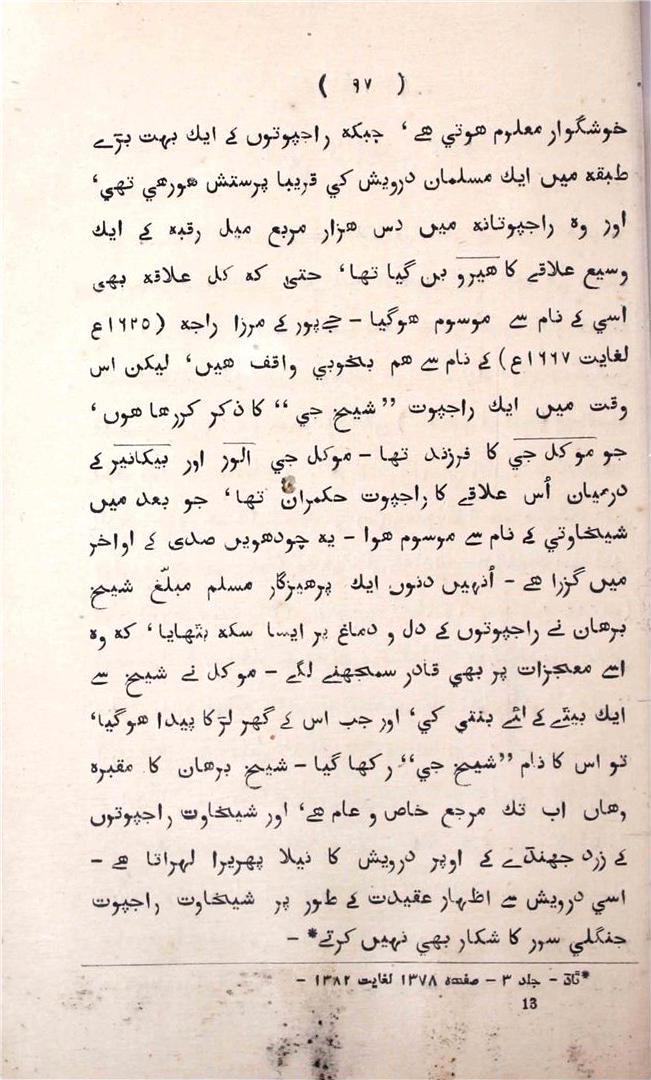 ( ۹۷ )
خوشگوار معلوم هوتي هے ‘ جبکه راجپوتوں کے ایك بہت بڑے
طبقه میں ایك مسلمان درویش کي قریبا پرستش هورهي تهي‘
اور وه راجپوتانه میں دس هزار مربع میل رقبه کے ایك
وسیع علاقے کا هیرو بن گیا تها‘ حتی که کل علاقه بهي
اسي کے نام سے موسوم هوگیا - جےپور کے مرزا راجه (۱۶۲۵ع
لغایت ۱۶۶۷ع) کے نام سے هم بخوبي واقف هیں‘ لیکن اس
وقت میں ایك راجپوت ”شیخ جي“ کا ذکر کررها هوں‘
جو موکل جي کا فرزند تها - موکل جي الور اور بیکانیر کے
درمیان اُس علاقے کا راجپوت حکمران تها‘ جو بعد میں
شیخاوتي کے نام سے موسوم هوا - یه چودهویں صدی کے اواخر
میں گزرا هے - اُنہیں دنوں ایك پرهیزگار مسلم مبلّغ شیخ
برهان نے راجپوتوں کے دل و دماغ پر ایسا سکه بٹهایا‘ که وه
اسے معجزات پر بهي قادر سمجهنے لگے - موکل نے شیخ سے
ایك بیٹے کے لئے بنتي کي‘ اور جب اس کے گهر لڑکا پیدا هوگیا‘
تو اس کا نام ”شیخ جي“ رکها گیا - شیخ برهان کا مقبره
وهاں اب تك مرجع خاص و عام هے‘ اور شیخاوت راجپوتوں
کے زرد جهنڈے کے اوپر درویش کا نیلا پهریرا لہراتا هے -
اسي درویش سے اظهار عقیدت کے طور پر شیخاوت راجپوت
جنگلي سور کا شکار بهي نہیں کرتے* -
*ٹاڈ - جلد ۳ - صفحه ۱۳۷۸ لغایت ۱۳۸۲ -
13